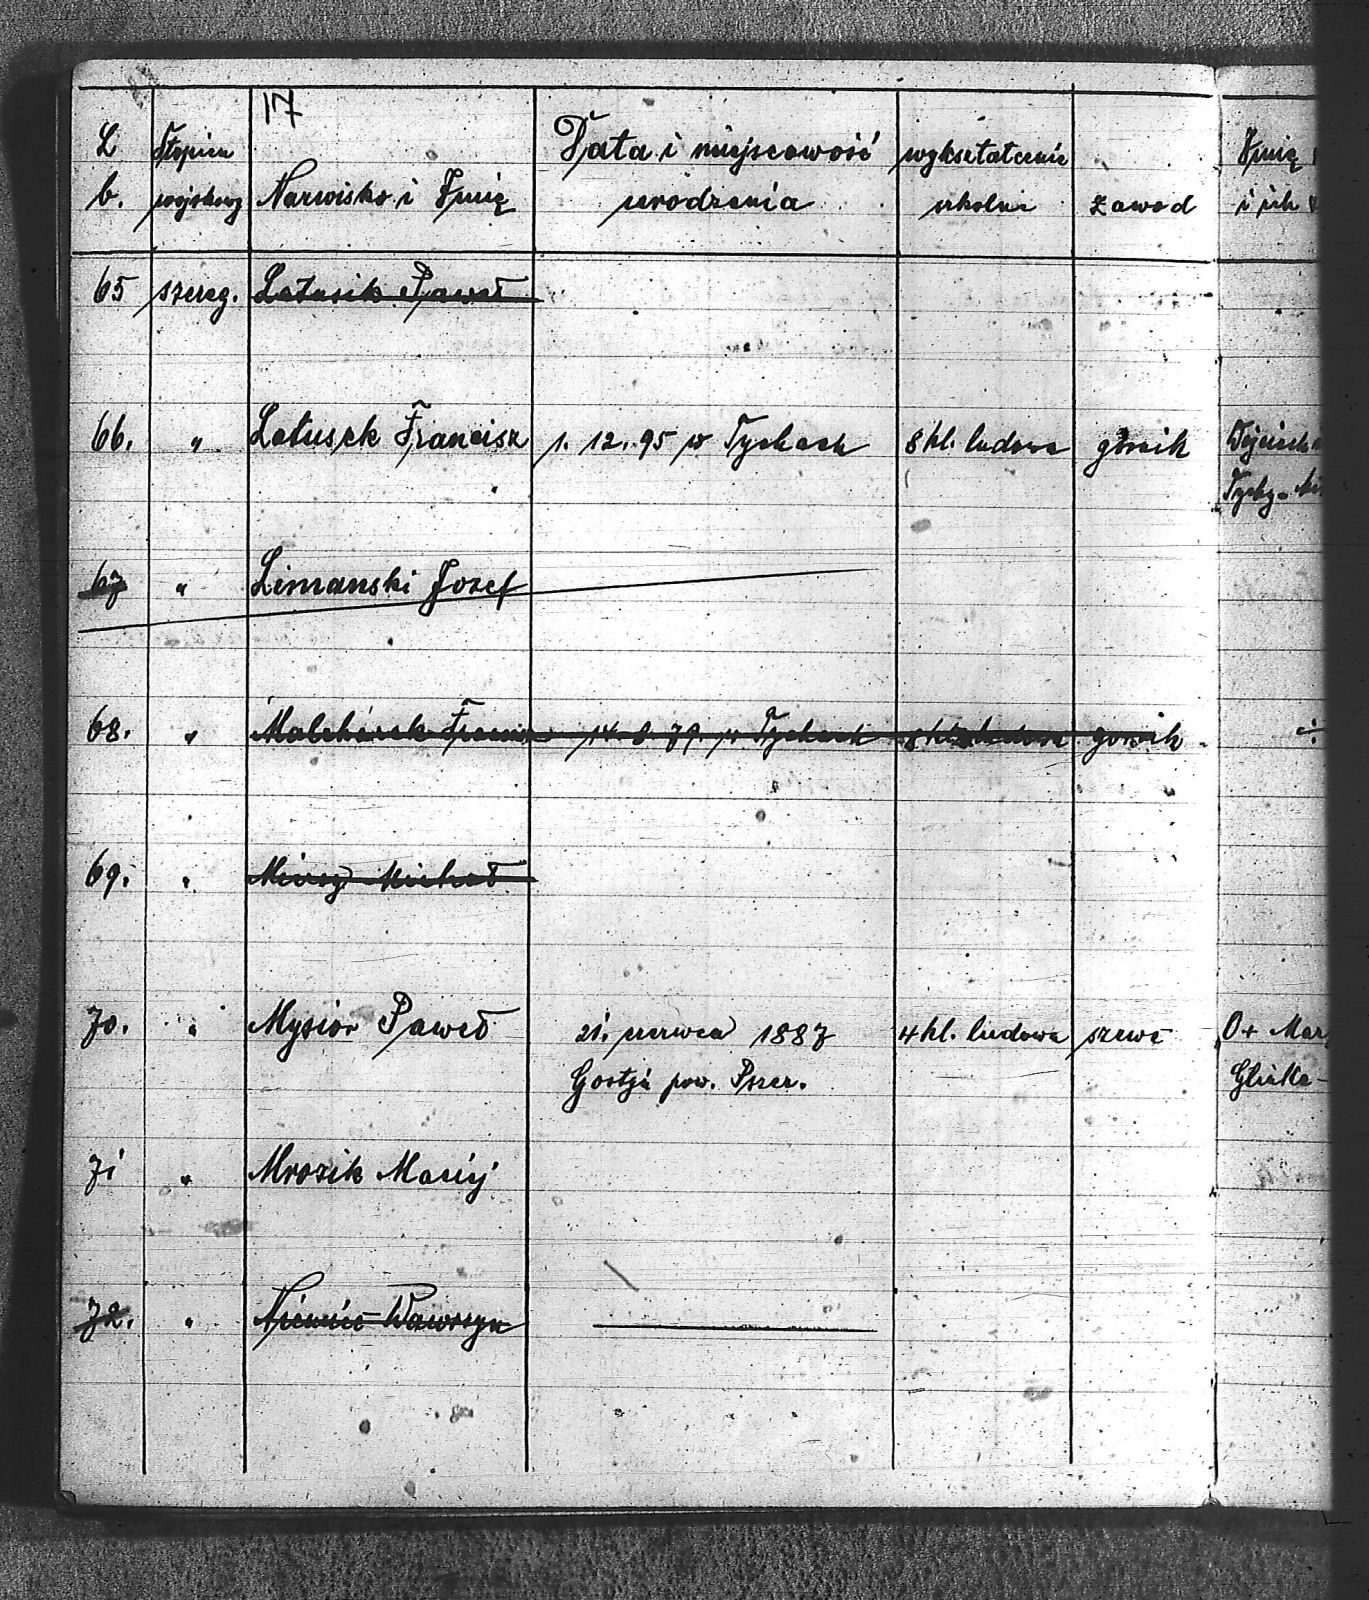 17
L b. Stopień wojskowy Nazwisko i Imię Data i miejscowość urodzenia wykształcenie szkolne zawod Imię
i ich
65 szereg. Latusik Paweł
66. " Latusek Francisz 1. 12. 95 w Tychach 8 kl. ludowa górnik
Tychy-
67 " Limanski Jozef
68. " Malcharek 14. 8. 79. w Tychach 8 kl. ludowa gornik
69. " Michał
70. " Mysior Paweł 21. czerwca 1887 4 kl. ludowa szewc O+ Mar
pow. Pszcz.
71 " Mrozik Maciej
72. " Niemiec Wawrzyn